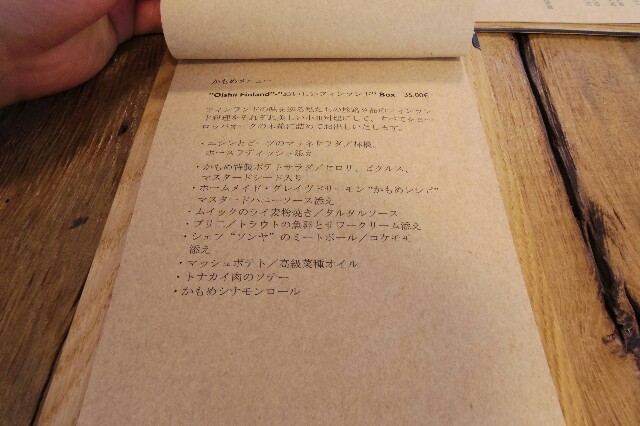 かもめメニュー
"Oishii Finland"-"おいしいフィンランド" Box 35.00€
フィンランドの味を
料理をそれぞれ美しい小皿料理にして、すべてをヨー
ロッパオークの木箱に詰めてお出しいたします。
・ニシンとビーツのマリネサラダ／林檎、
ホースラディッシュ添え
・かもめ特製ポテトサラダ／セロリ、ピクルス、
マスタードシード入り
・ホームメイド・グレイヴドサーモン"かもめレシピ"
マスタードハニーソース添え
・ムイックのライ麦粉焼き／タルタルソース
・ブリニ／トラウトの魚卵とサワークリーム添え
・シェフ "ソンヤ" のミートボール／コケモモ
添え
・マッシュポテト／高級菜種オイル
・トナカイ肉のソテー
・かもめシナモンロール